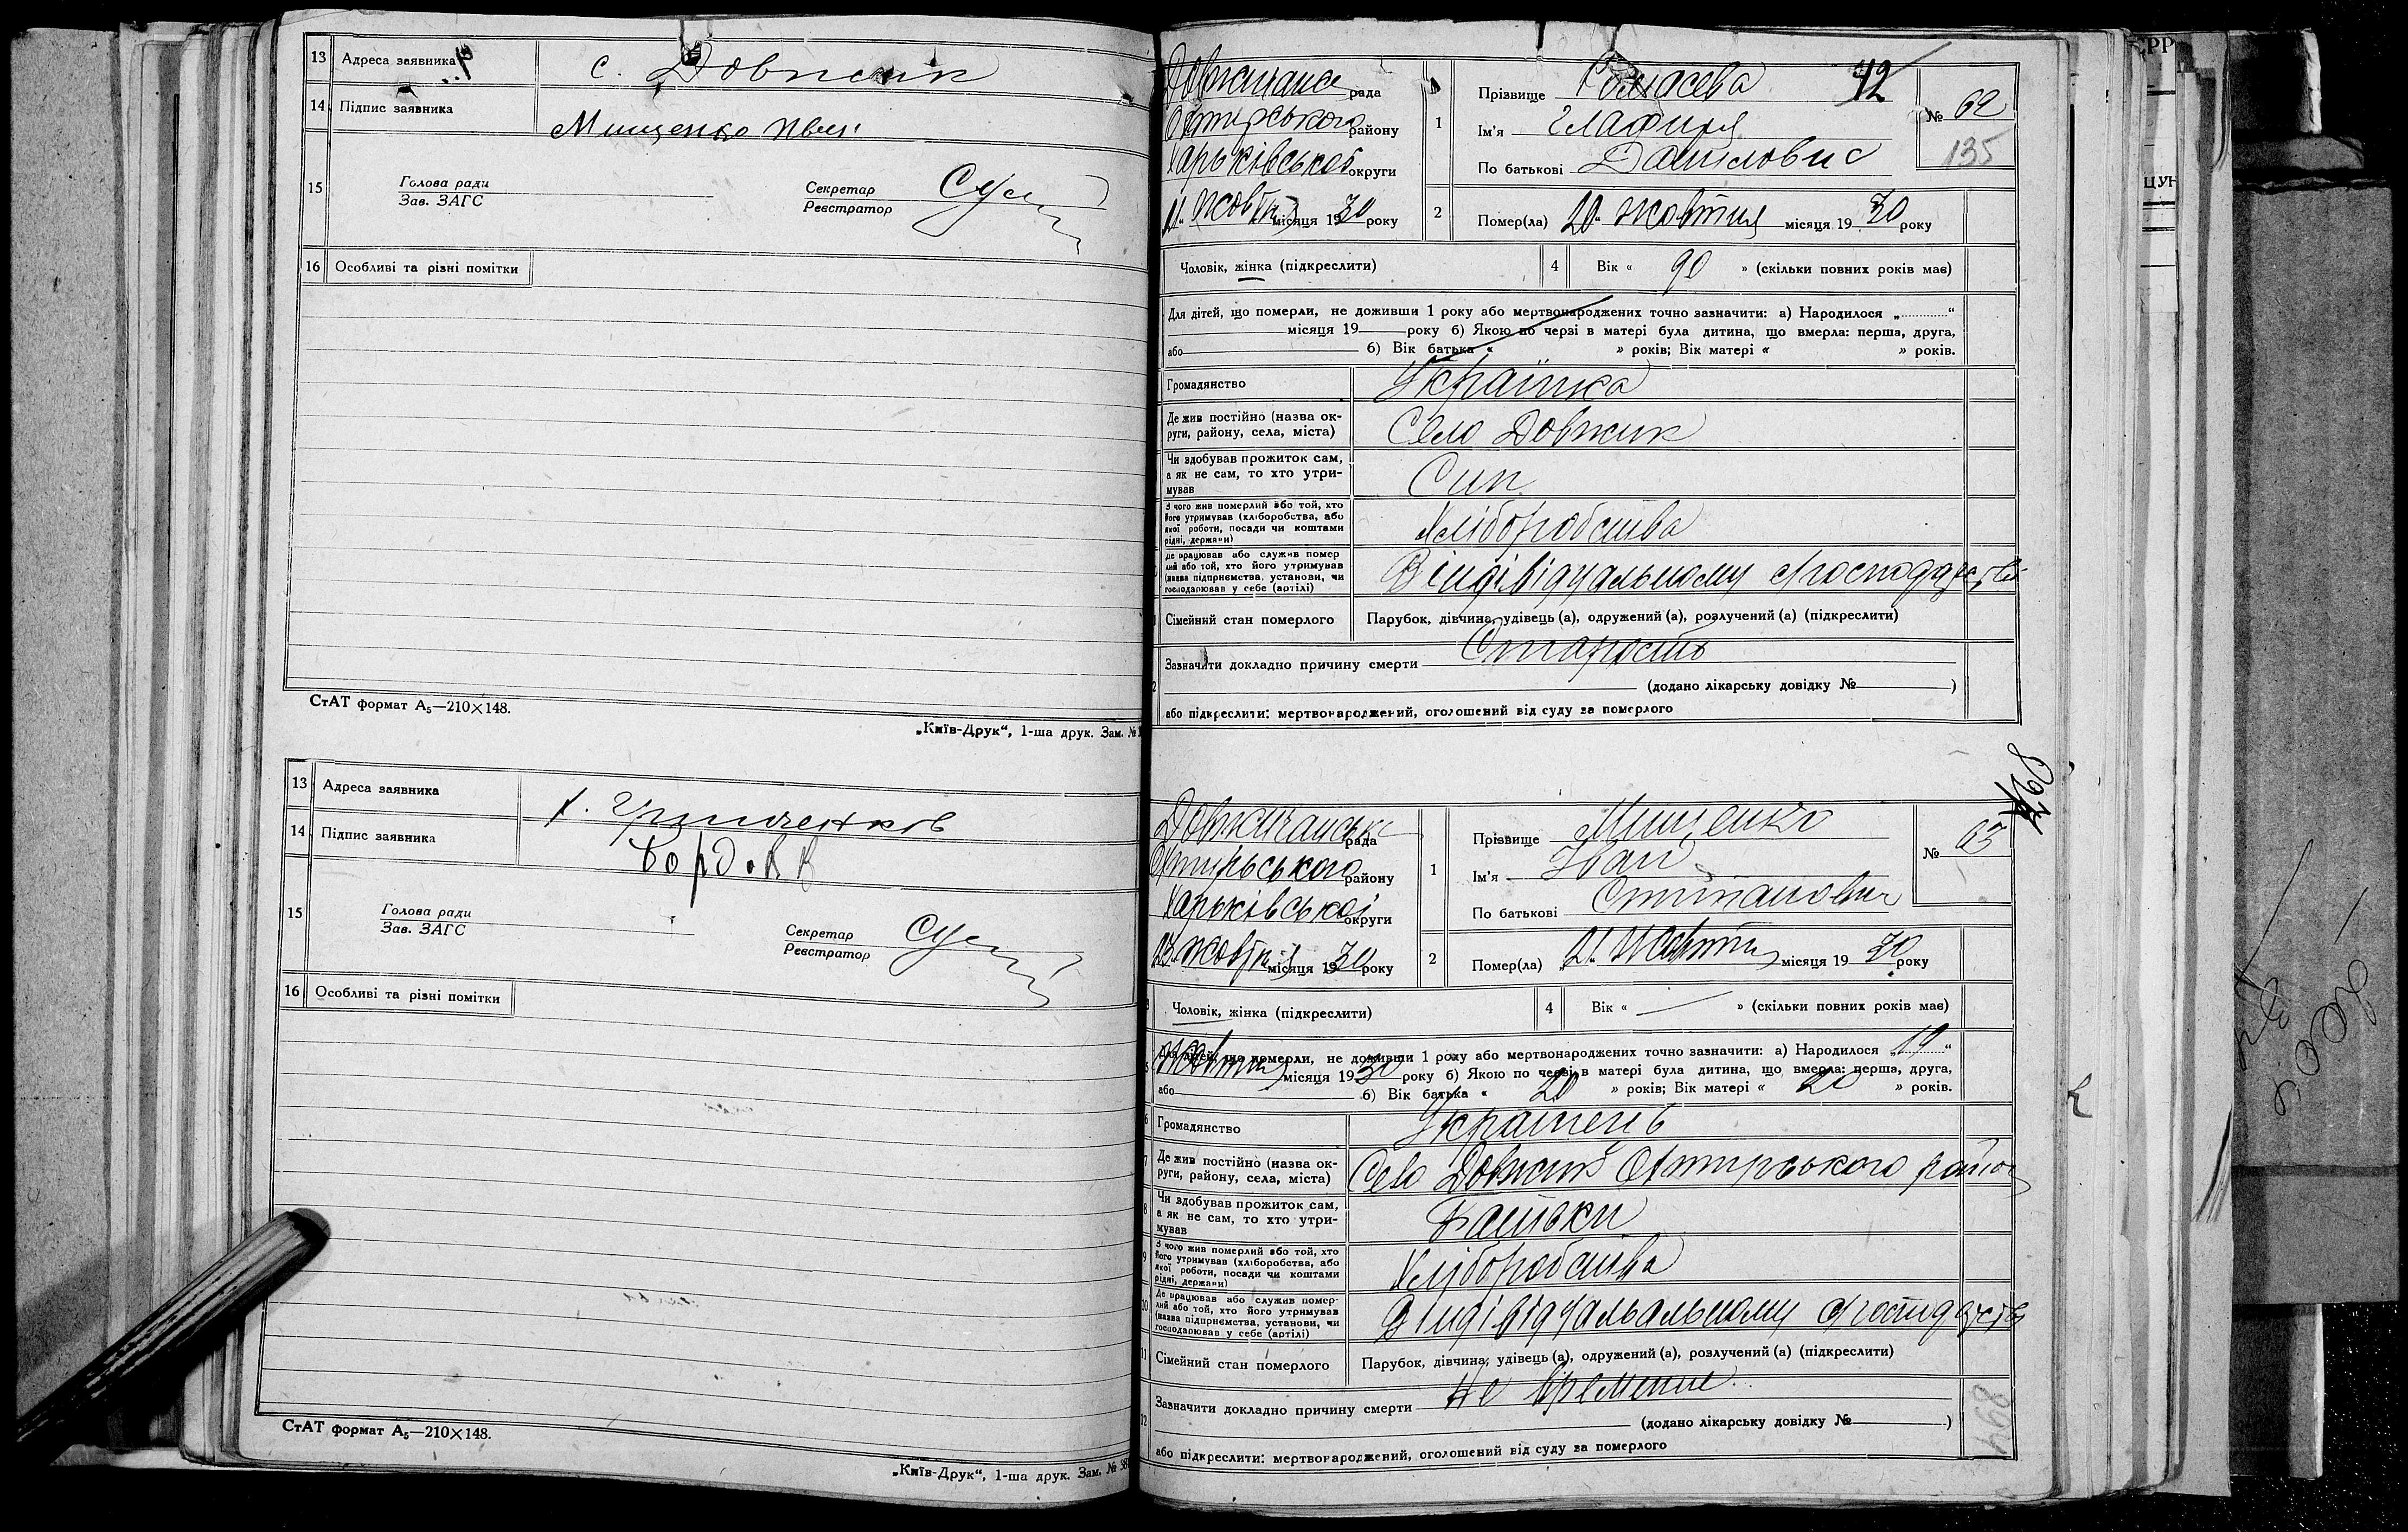 13 Адреса заявника с. Довжик
14 Підпис заявника
Мищенко
15 Голова ради
Зав. ЗАГС
Секретар
Реєстратор
16 Особливі та різні помітки
СтАТ формат А₅—210×148.
„Київ-Друк“, 1-ша друк. Зам. №
13 Адреса заявника
14 Підпис заявника
15 Голова ради
Зав. ЗАГС
Секретар
Реєстратор
16 Особливі та різні помітки
СтАТ формат А₅—210×148.
„Київ-Друк“, 1-ша друк. Зам. №
42
рада
району
Харьківської округи
жовтня місяця 1930 року
1 Прізвище
Ім'я Глафира
По батькові
№ 62
135
2 Помер(ла) „20“ жовтня місяця 1930 року
Чоловік, жінка (підкреслити)
4 Вік « 90 » (скільки повних років має)
Для дітей, що померли, не доживши 1 року або мертвонароджених точно зазначити: а) Народилося „ “
місяця 19 року б) Якою по черзі в матері була дитина, що вмерла: перша, друга,
або б) Вік батька « » років; Вік матері « » років.
Громадянство Українка
Де жив постійно (назва ок-
руги, району, села, міста) Село Довжик
Чи здобував прожиток сам,
а як не сам, то хто утри-
мував Син
З чого жив померлий або той, хто
його утримував (хліборобства, або
якої роботи, посади чи коштами
рідні, держави) Хліборобства
Де працював або служив помер
лий або той, хто його утримував
(назва підприємства, установи, чи
господарював у себе (артілі) В індівідуальному
Сімейний стан померлого Парубок, дівчина, удівець (а), одружений (а), розлучений (а) (підкреслити)
Зазначити докладно причину смерти Старость
(додано лікарську довідку № )
або підкреслити: мертвонароджений, оголошений від суду за померлого
рада
району
Харьківської округи
жовтня місяця 1930 року
1 Прізвище Мищенко
Ім'я Іван
По батькові
№ 63
2 Помер(ла) „21“ жовтня місяця 1930 року
Чоловік, жінка (підкреслити)
4 Вік « — » (скільки повних років має)
Для дітей, що померли, не доживши 1 року або мертвонароджених точно зазначити: а) Народилося „19“
жовтня місяця 1930 року б) Якою по черзі в матері була дитина, що вмерла: перша, друга,
або б) Вік батька « 20 » років; Вік матері « 20 » років.
6 Громадянство Українець
7 Де жив постійно (назва ок-
руги, району, села, міста) Село Довжик
8 Чи здобував прожиток сам,
а як не сам, то хто утри-
мував Батьки
9 З чого жив померлий або той, хто
його утримував (хліборобства, або
якої роботи, посади чи коштами
рідні, держави) Хліборобства
10 Де працював або служив помер-
лий або той, хто його утримував
(назва підприємства, установи, чи
господарював у себе (артілі)
11 Сімейний стан померлого Парубок, дівчина, удівець (а), одружений (а), розлучений (а) (підкреслити)
12 Зазначити докладно причину смерти
(додано лікарську довідку № )
або підкреслити: мертвонароджений, оголошений від суду за померлого